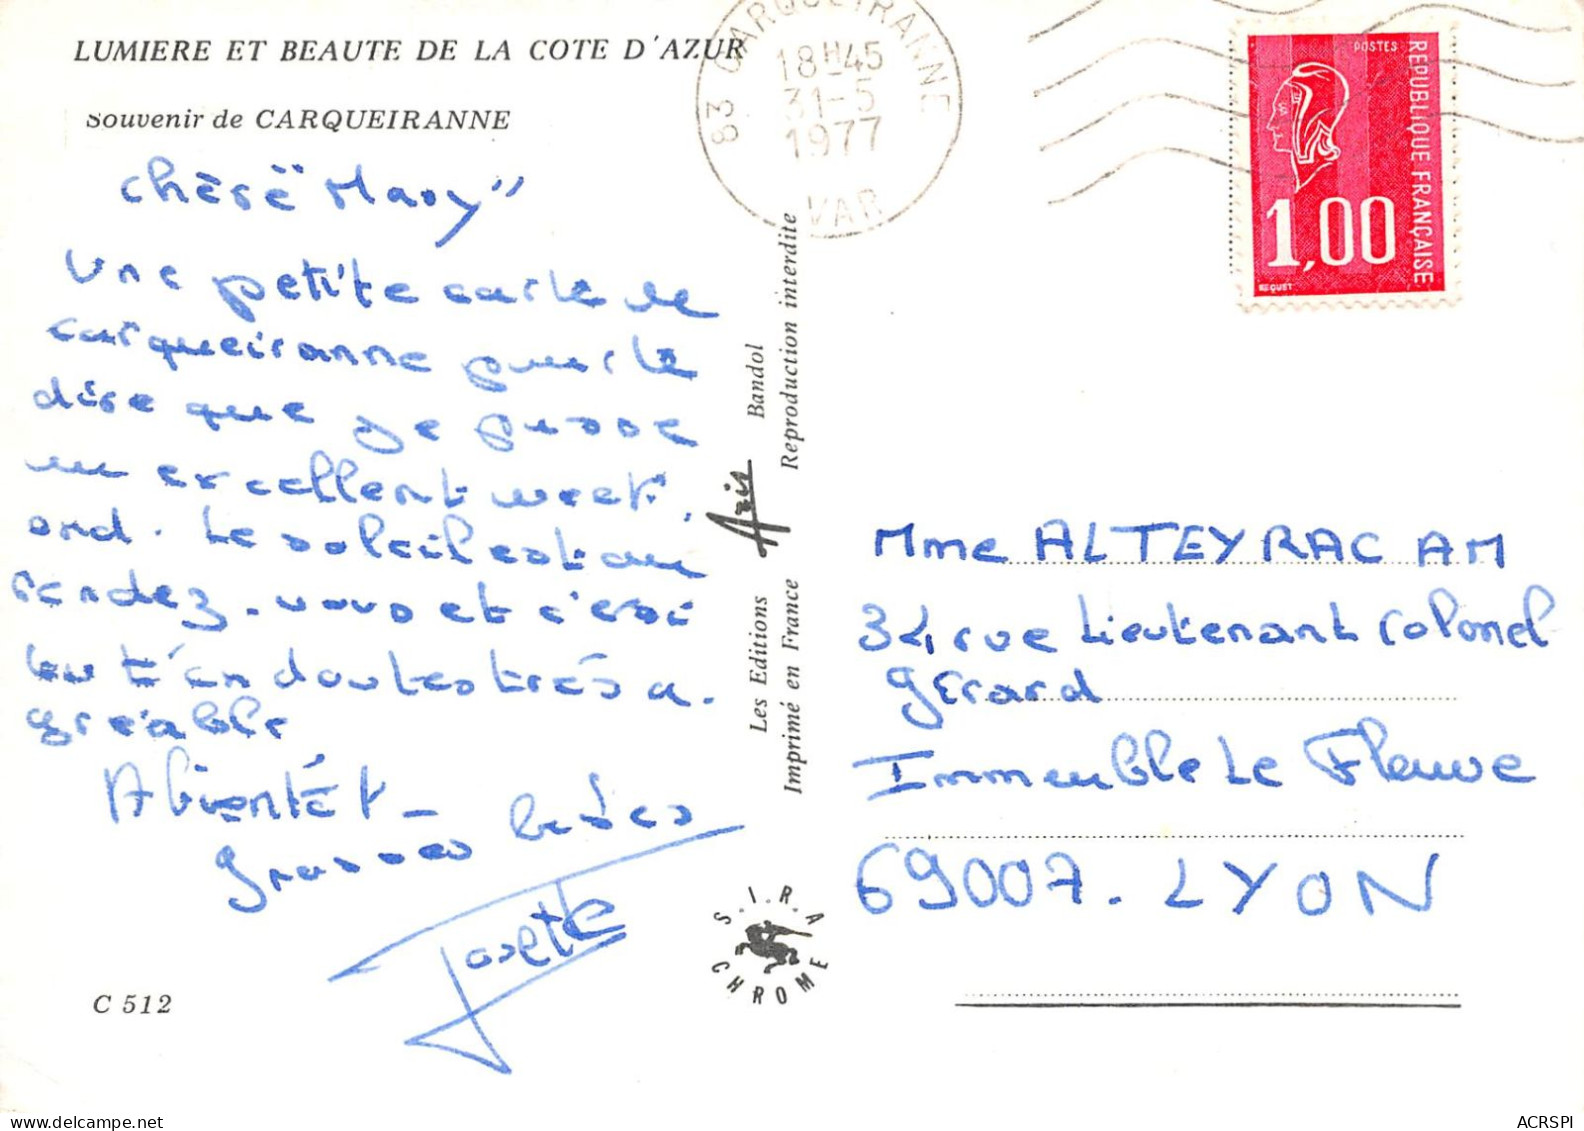 LUMIERE ET BEAUTE DE LA COTE D'AZUR
Souvenir de CARQUEIRANNE
chère "Mary"
Une petite carte de
carqueiranne pour te
dire que je passe
un excellent week-
end. Le soleil est au
rendez-vous et c'est
t'en doutes très a-
gréable
A bientôt -
grosses bises
Josette
C 512
83 CARQUEIRANNE
18H45
31-5
1977
VAR
Les Editions Aris Bandol
Imprimé en France Reproduction interdite
S.I.R.A
CHROME
POSTES
REPUBLIQUE FRANÇAISE
1,00
BEQUET
Mme ALTEYRAC AM
34 rue Lieutenant Colonel
Gérard
Immeuble Le Fleuve
69007. LYON
ACRSPI